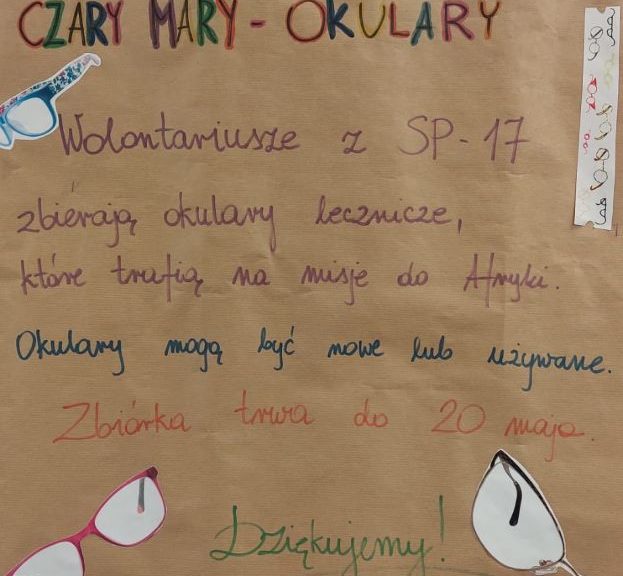 CZARY MARY - OKULARY
Wolontariusze z SP-17
zbierają okulary lecznicze,
które trafią na misje do Afryki.
Okulary mogą być nowe lub używane.
Zbiórka trwa do 20 maja.
Dziękujemy!